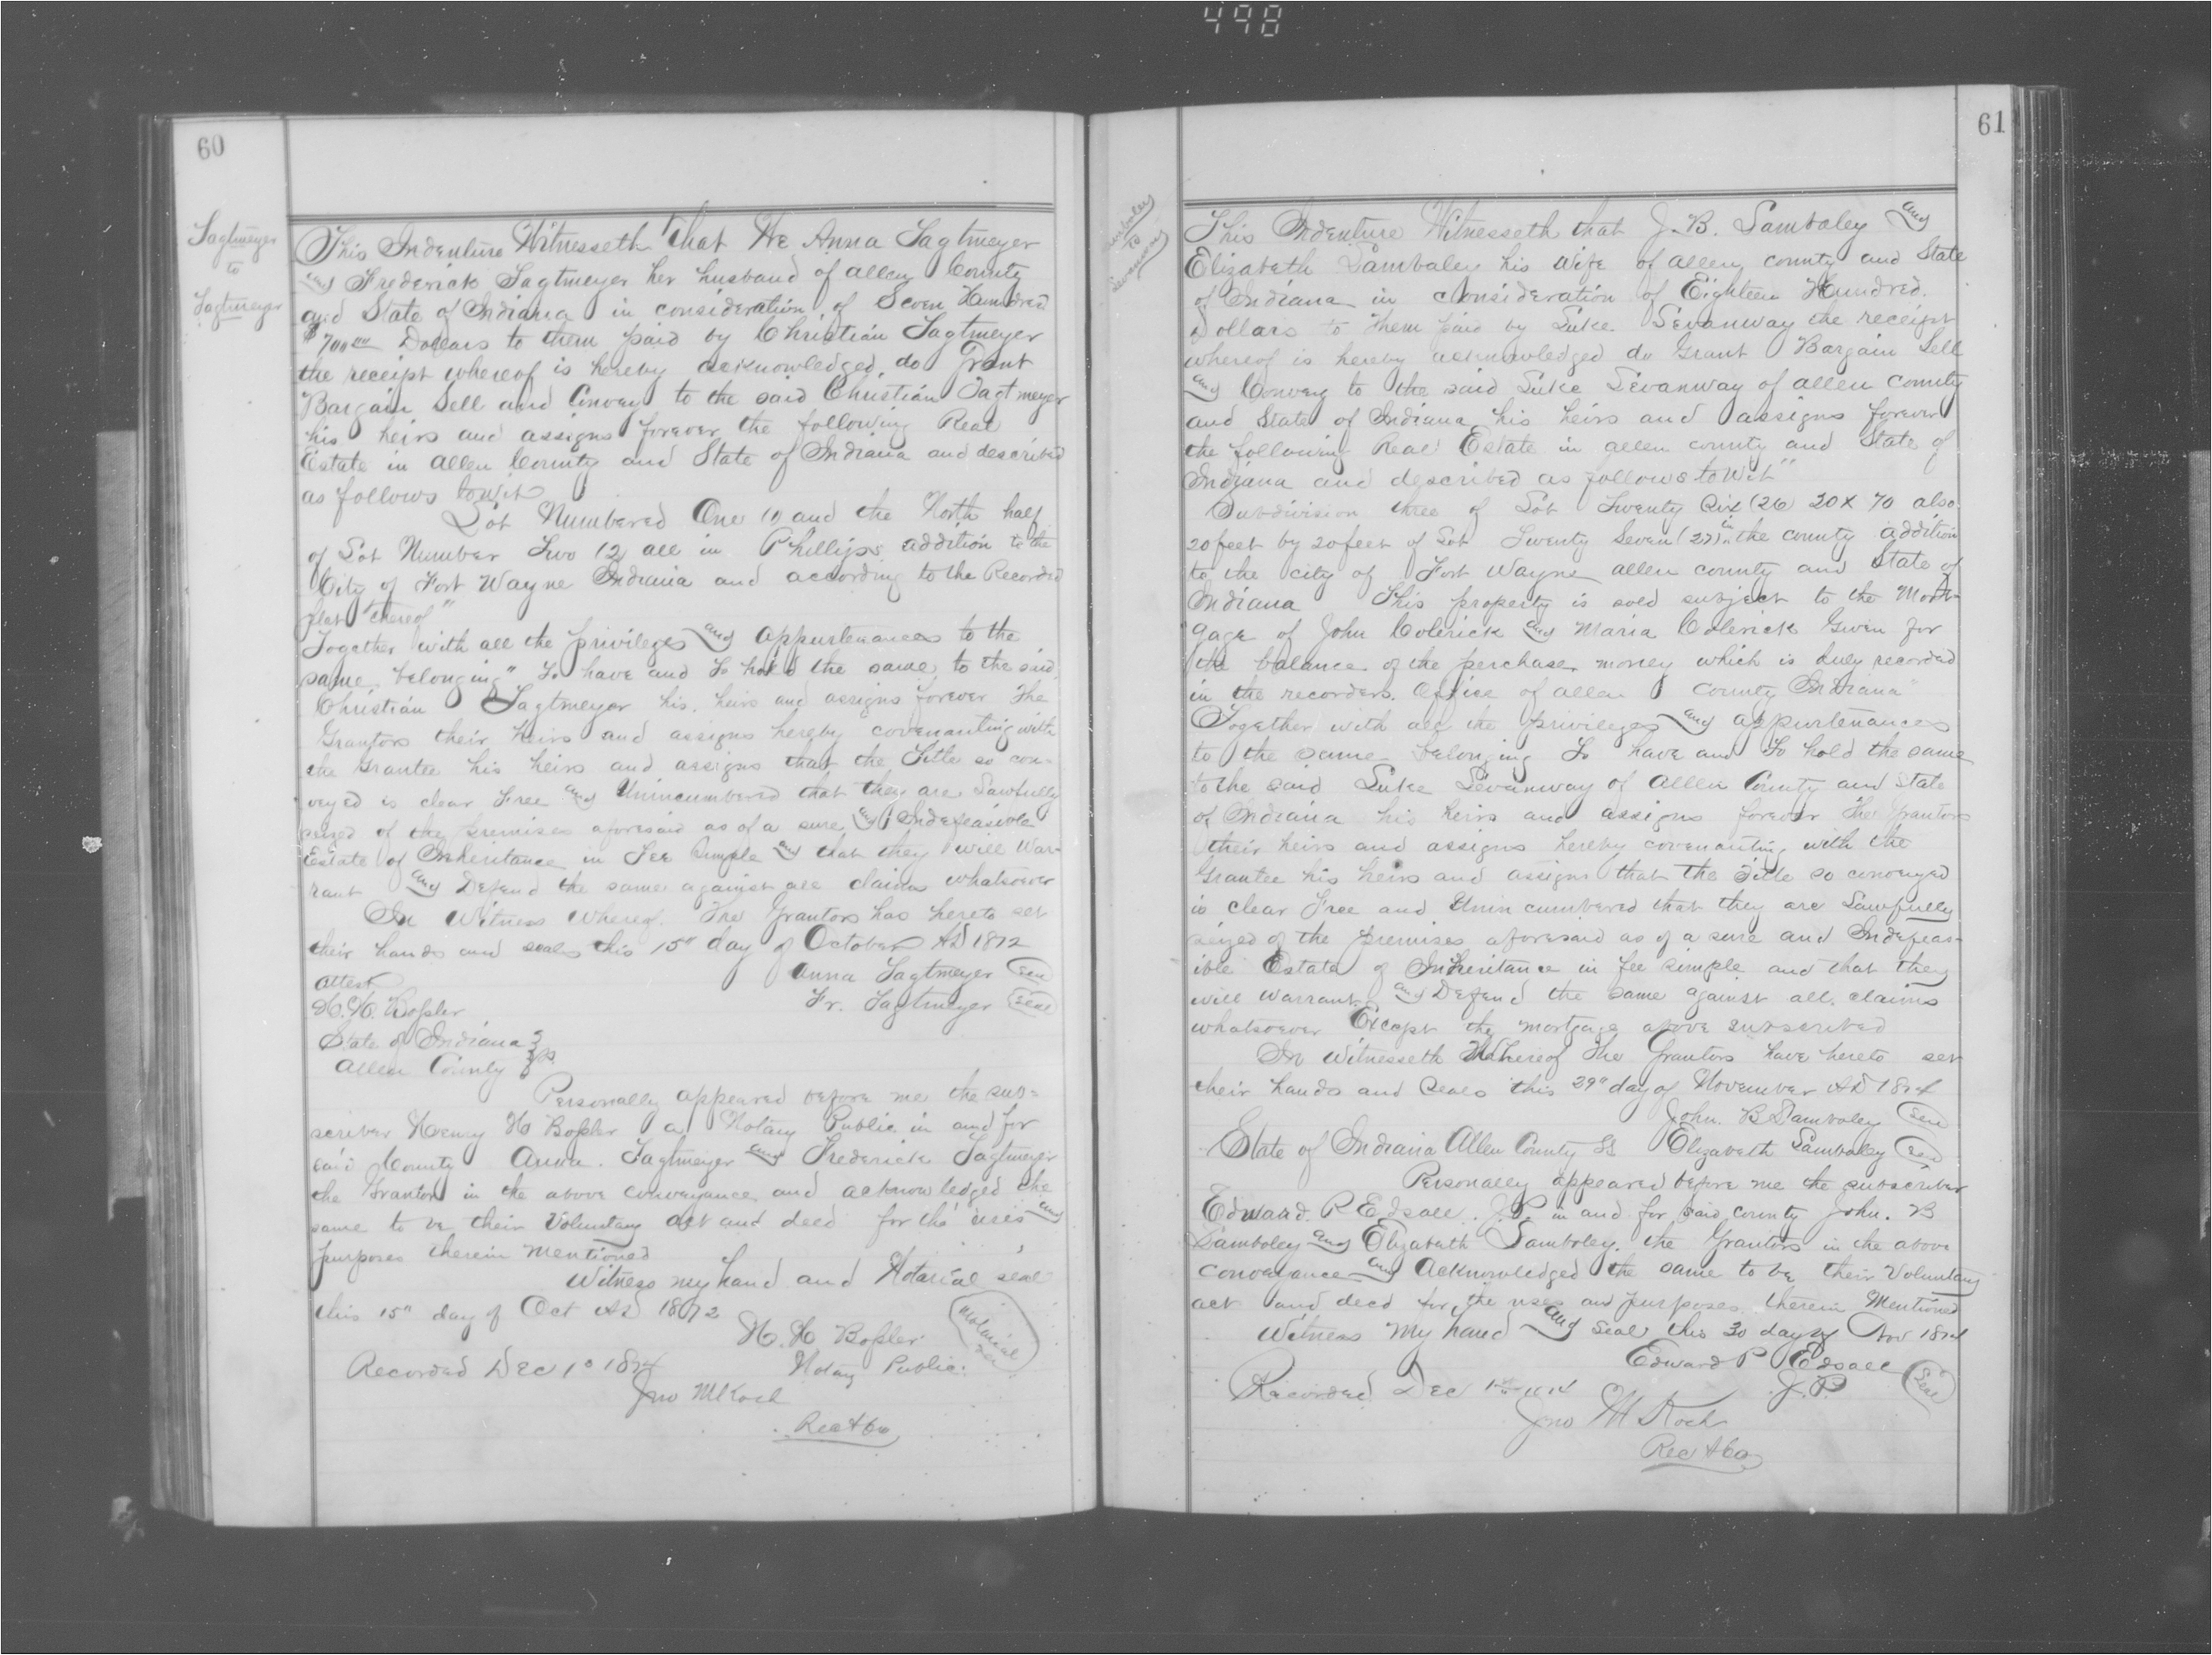 498
60
Sagtmeyer
to
Sagtmeyer
This Indenture Witnesseth That We Anna Sagtmeyer
and Frederick Sagtmeyer her husband of allen County
and State of Indiana in consideration of Seven Hundred
$700.00 Dollars to them paid by Christian Sagtmeyer
the receipt whereof is hereby acknowledged, do Grant
Bargain Sell and Convey to the said Christian Sagtmeyer
his heirs and assigns forever the following Real
Estate in allen County and State of Indiana and described
as follows towit
Lot Numbered One (1) and the North half
of Lot Number Two (2) all in Phillips addition to the
City of Fort Wayne Indiana and according to the Recorded
plat thereof"
Together with all the privileges and appurtenances to the
same belonging" To have and To hold the same to the said
Christian Sagtmeyer his heirs and assigns forever The
Grantors their heirs and assigns hereby covenanting with
the Grantee his heirs and assigns that the Title so con-
veyed is clear Free and Unincumbered that they are Lawfully
seized of the premises aforesaid as of a sure and Indefeasible
Estate of Inheritance in Fee Simple and that they will War-
rant and Defend the same against all claims whatsoever
In Witness Whereof. The Grantors has hereto set
their hands and seals this 15" day of October AD 1872
Anna Sagtmeyer Seal
attest
Fr. Sagtmeyer Seal
H. H. Boßler
State of Indiana }
Allen County } ss
Personally appeared before me the sub-
scriber Henry H Boßler a Notary Public in and for
said County Anna. Sagtmeyer and Frederick Sagtmeyer
the Grantors in the above conveyance and acknowledged the
same to be their Voluntary act and deed for the uses and
purposes therein mentioned
Witness my hand and Notarial seal
this 15" day of Oct AD 1872
H. H Boßler
Notary Public.
Notarial Seal
Recorded Dec 1st 1874
Jno M Koch
Rec A Co
61
This Indenture Witnesseth that J. B. Sambaley and
Elizabeth Sambaley his Wife of allen county and State
of Indiana in consideration of Eighteen Hundred.
Dollars to them paid by Luke Sevanway the receipt
whereof is hereby acknowledged do Grant Bargain Sell
and Convey to the said Luke Sevanway of allen county
and State of Indiana his heirs and assigns forever
the following Real Estate in allen county and State of
Indiana and described as follows to Wit"
Subdivision three of Lot Twenty Six (26) 20 x 70 also
20 feet by 20 feet of Lot Twenty Seven (27) in the county addition
to the city of Fort Wayne allen county and State of
Indiana This property is sold subject to the Mort-
gage of John Colerick and Maria Colerick Given for
the balance of the perchase money which is duly recorded
in the recorders. Office of allen county Indiana"
Together with all the privileges and appurtenances
to the same belonging To have and To hold the same
to the said Luke Sevanway of Allen County and State
of Indiana his heirs and assigns forever The Grantors
their heirs and assigns hereby covenanting with the
Grantee his heirs and assigns that the Title so conveyed
is clear Free and Unincumbered that they are Lawfully
seized of the premises aforesaid as of a sure and Indefeas-
ible Estate of Inheritance in fee simple and that they
will warrant and Defend the same against all. claims
whatsoever Except the mortgage above subscribed
In Witnesseth Whereof The Grantors have hereto set
their hands and seals this 29" day of November AD 1874
John. B Sambaley Seal
State of Indiana Allen County SS Elizabeth Sambaley Seal
Personally appeared before me the subscriber
Edward. P Edsall. J.P. in and for said county John. B
Sambaley and Elizabeth Sambaley. the Grantors in the above
conveyance and acknowledged the same to be their Voluntary
act and deed for the uses and purposes therein Mentioned
Witness My hand and seal this 30 day of Nov 1874
Edward P Edsall
J.P. Seal
Recorded Dec 1st 1874
Jno M Koch
Rec A Co